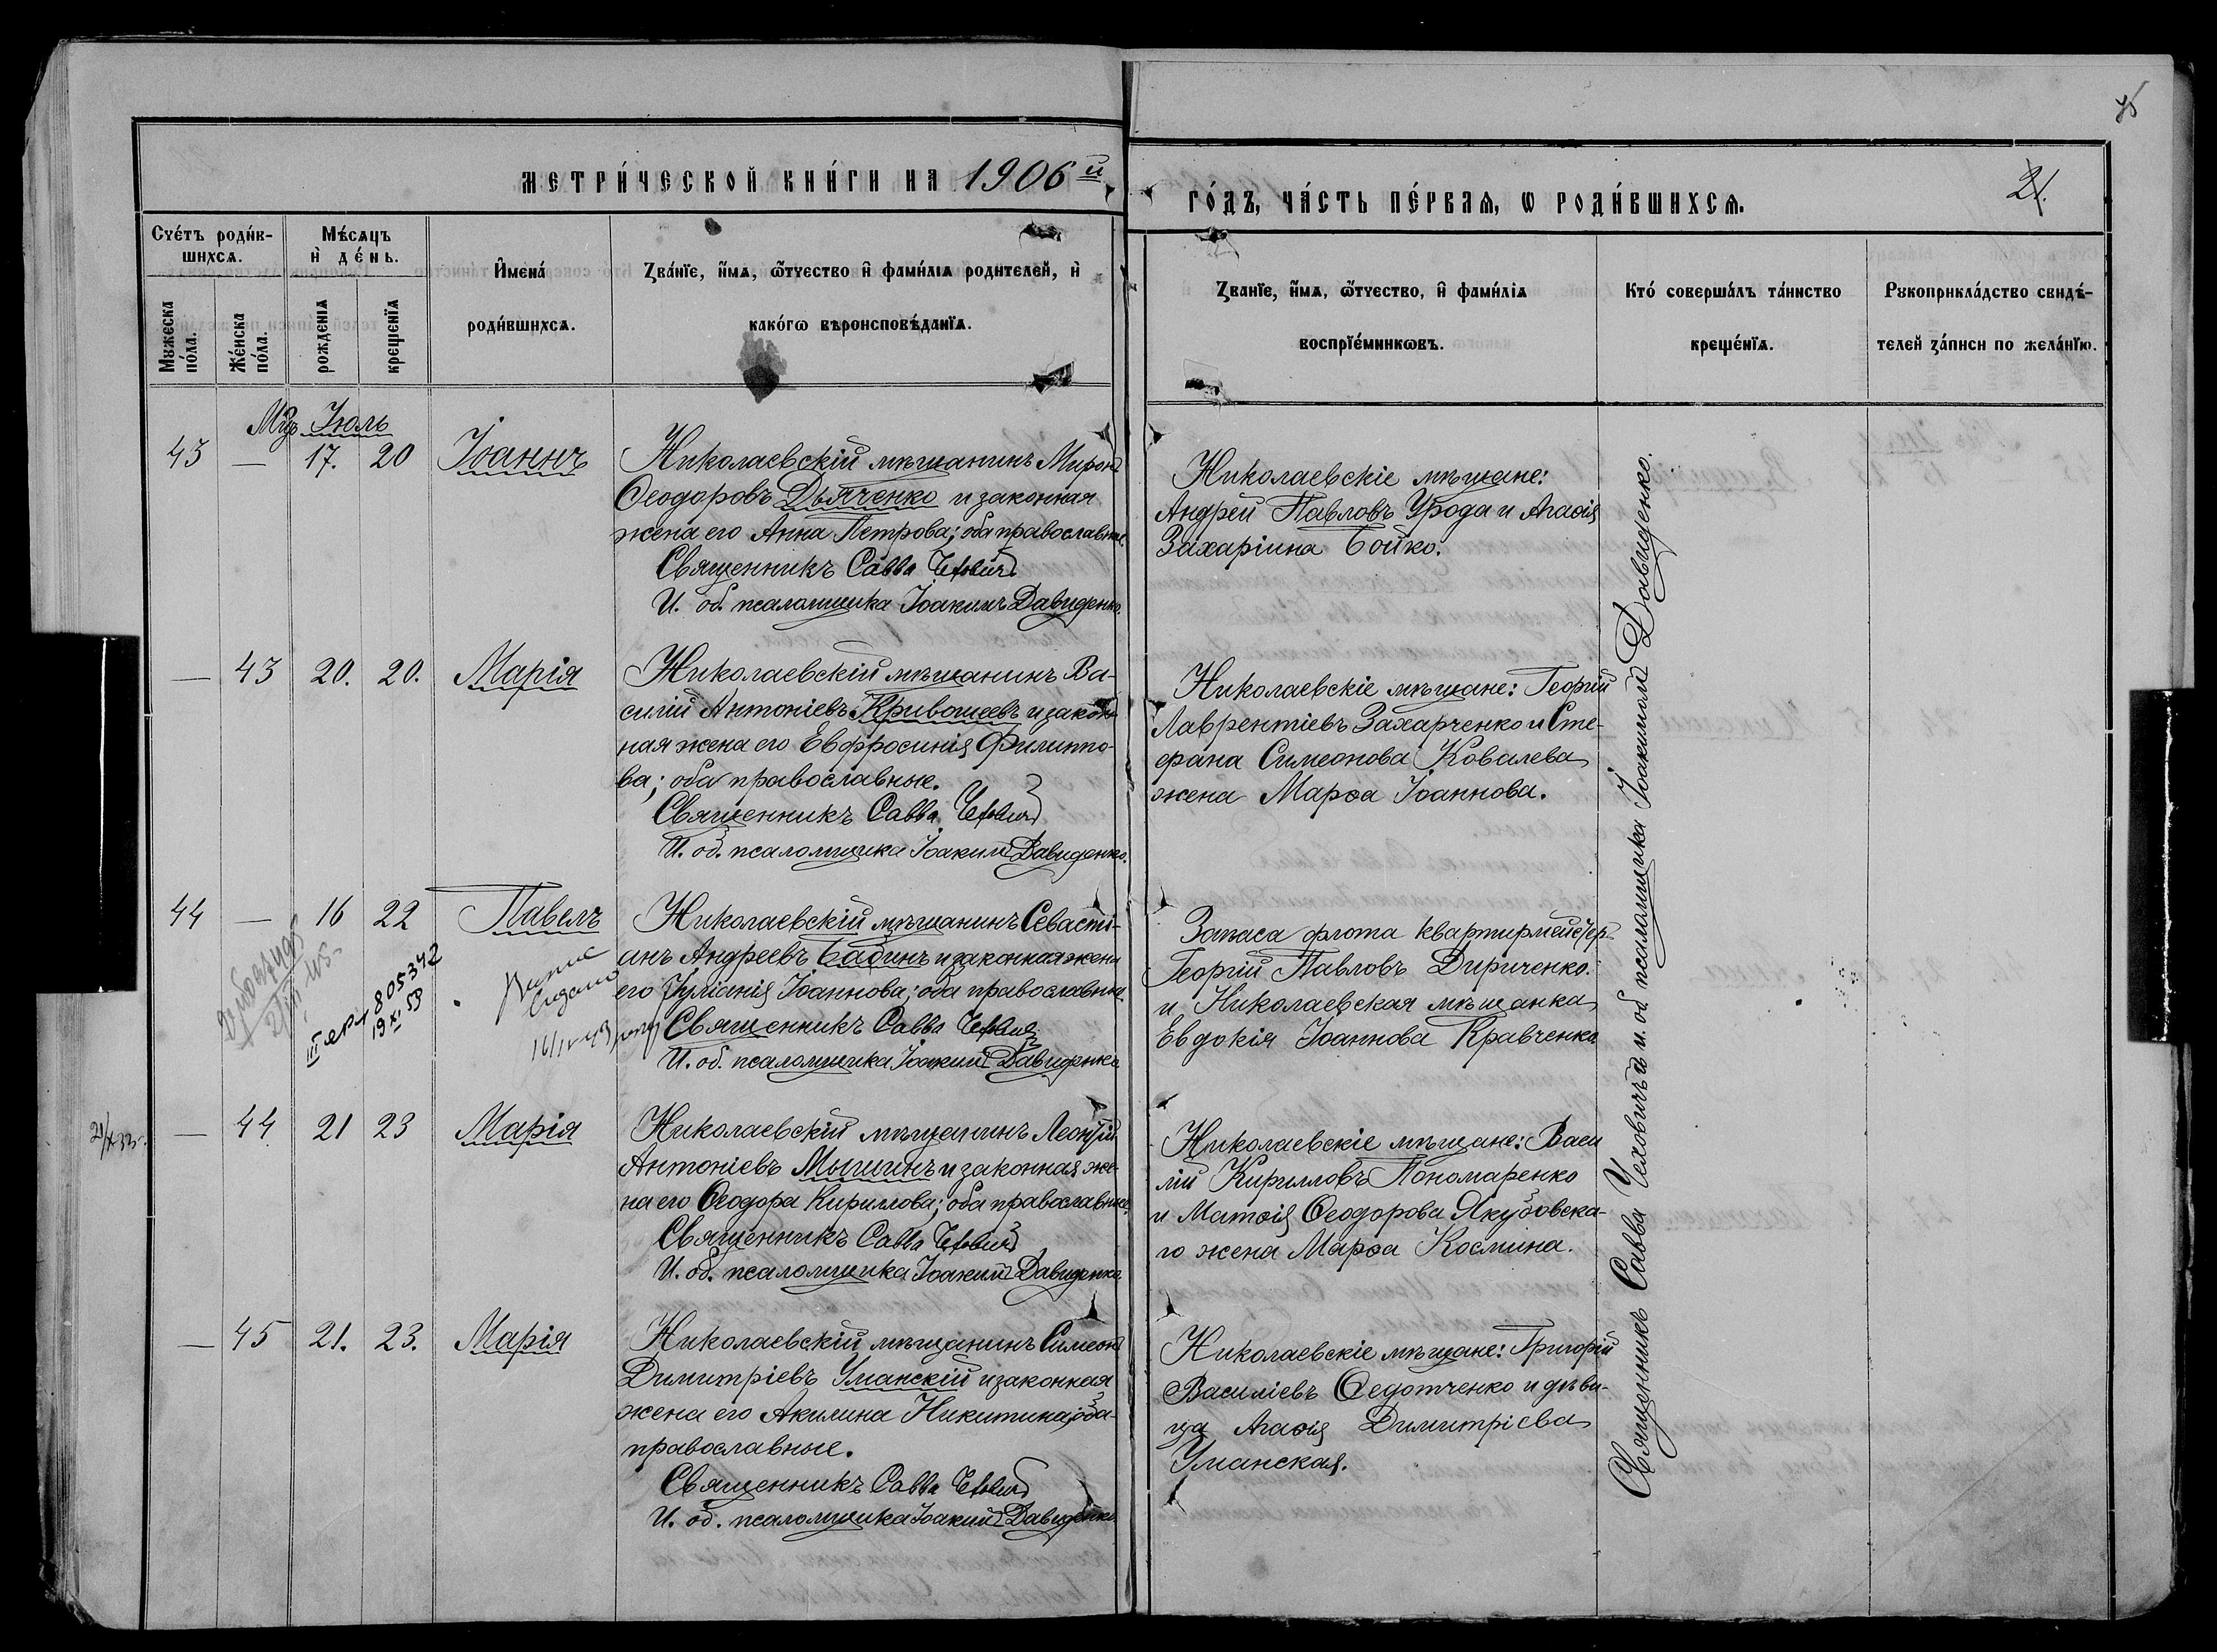 75
МЕТРИ́ЧЕСКОЙ КНИ́ГИ НА 1906й
ГО́ДЪ, ЧА́СТЬ ПЕ́РВАЯ, Ѡ РОДИ́ВШИХСЯ.
21.
Счетъ роди́в-
шихся.
Мѣ́сяцъ
и де́нь.
Мужеска по́ла.
Же́нска по́ла.
рожденїя
крещенїя
Имена́
роди́вшихся.
Зва́нїе, и́мя, ѻ҆́тчество и фами́лїя родителей, и
како́гѡ вѣроисповѣ́данїя.
Званїе, и́мя, ѻ҆́тчество, и фами́лїя
воспрїе́мникѡвъ.
Кто́ соверша́лъ та́инство
креще́нїя.
Рукоприкла́дство свидѣ́-
телей за́писи по жела́нїю.
Мцъ Іюль
43 — 17. 20 Іоаннъ
Николаевскій мѣщанинъ Миронъ
Ѳеодоровъ Дьяченко и законная
жена его Анна Петрова; оба православные.
Священникъ Савва Чехович
И. об. псаломщика Іоакимъ Давиденко.
Николаевскіе мѣщане:
Андрей Павловъ Урода и Агаѳія
Захаріина Бойко.
— 43 20. 20. Марія
Николаевскій мѣщанинъ Ва-
силій Антоніевъ Кривошеевъ и закон-
ная жена его Евфросинія Филиппо-
ва; оба православные.
Священникъ Савва Чехович
И. об. псаломщика Іоакимъ Давиденко.
Николаевскіе мѣщане: Георгій
Лаврентіевъ Захарченко и Сте-
фана Симеонова Ковалева
жена Марѳа Іоаннова.
44 — 16 22 Павелъ
Николаевскій мѣщанинъ Севасті-
анъ Андреевъ Бабинъ и законная жена
его Іуліанія Іоаннова; оба православные.
Священникъ Савва Чехович
И. об. псаломщика Іоакимъ Давиденко
Запаса флота квартирмейстеръ
Георгій Павловъ Дириченко
и Николаевская мѣщанка
Евдокія Іоаннова Кравченко
805342
19 XI 53
16/IV 43
— 44 21 23 Марія
Николаевскій мѣщанинъ Леонтій
Антоніевъ Мышинъ и законная же-
на его Ѳеодора Кириллова; оба православные.
Священникъ Савва Чехович
И. об. псаломщика Іоакимъ Давиденко
Николаевскіе мѣщане: Васи
лій Кирилловъ Пономаренко
и Матѳія Ѳеодорова Якубовска-
го жена Марѳа Космина.
— 45 21. 23. Марія
Николаевскій мѣщанинъ Симеонъ
Димитріевъ Уманскій и законная
жена его Акилина Никитина; оба
православные.
Священникъ Савва Чехович
И. об. псаломщика Іоакимъ Давиденко
Николаевскіе мѣщане: Григорій
Василіевъ Ѳедотченко и дѣви-
ца Агаѳія Димитріева
Уманская.
Священникъ Савва Чеховичъ и и. об. псаломщика Іоакимъ Давиденко.